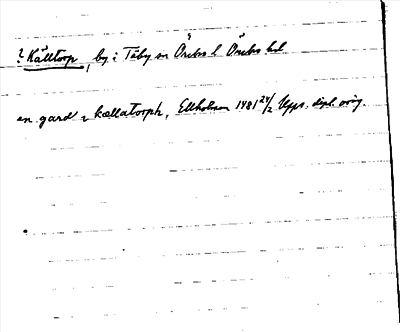 ? Källtorp, by i Täby sn Örebro l Örebro hd
en gard i kællatorph, Ekholmen 1481 24/2 Upps. dipl. orig.